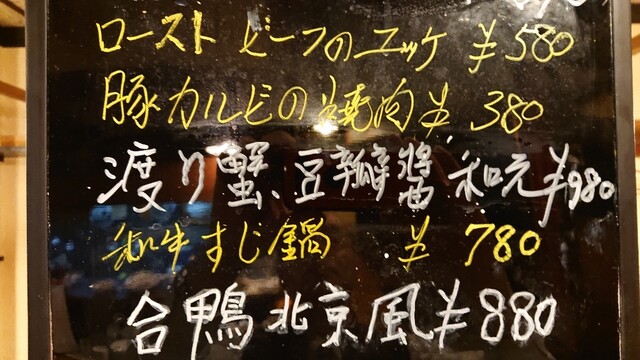 ローストビーフのユッケ ¥580
豚カルビの焼肉 ¥380
渡り蟹、豆瓣醬、和え ¥980
和牛すじ鍋 ¥780
合鴨北京風 ¥880